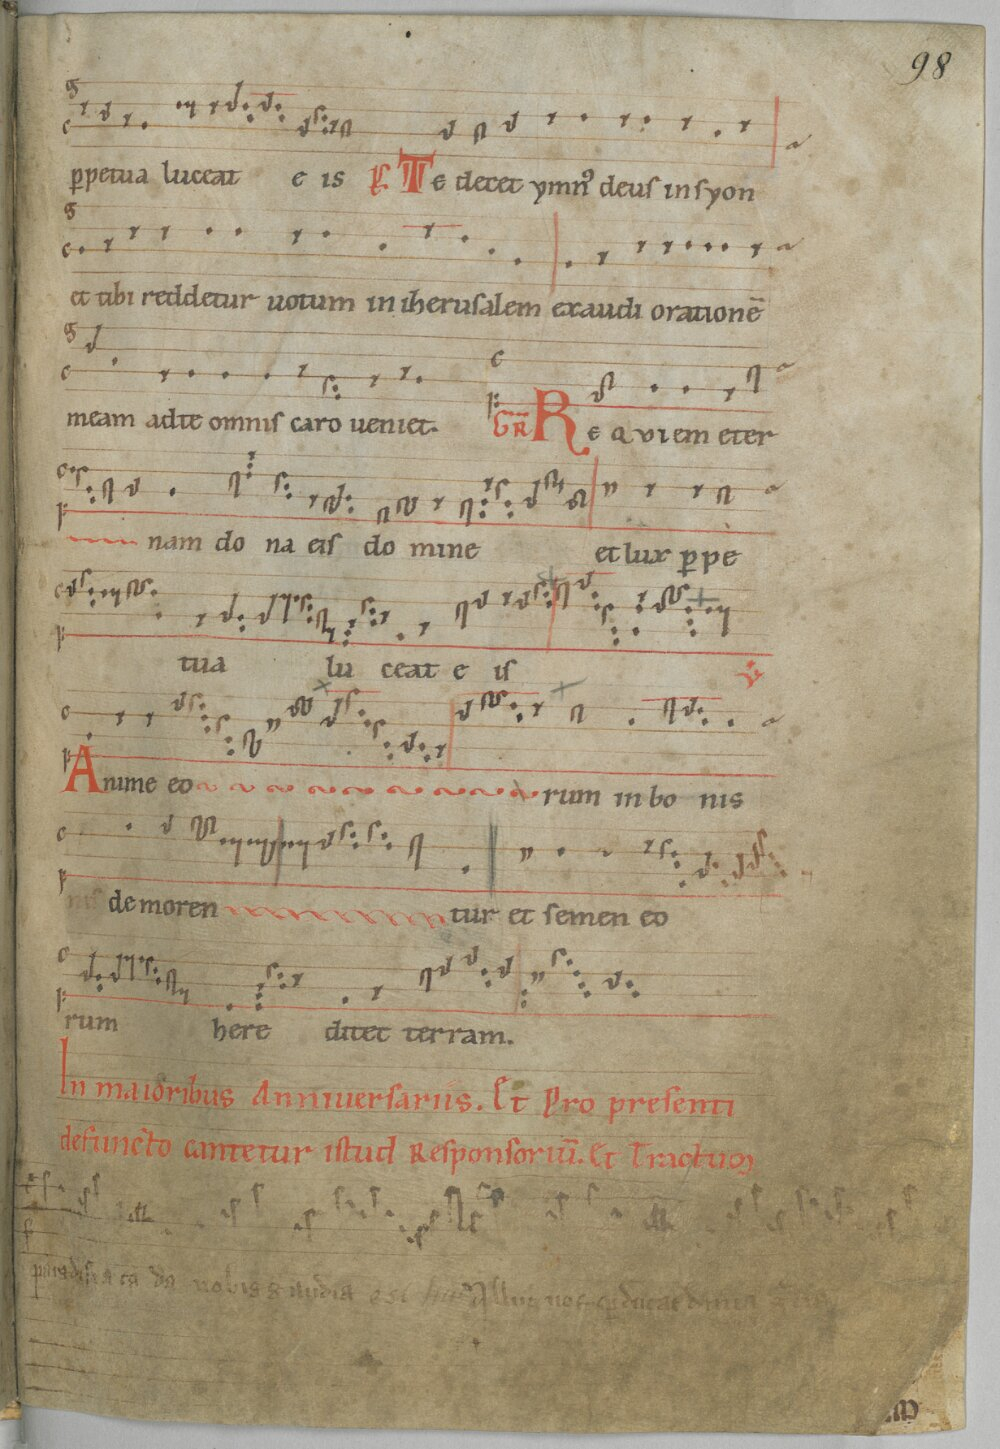 98
ꝑpetua luceat e is P̃ Te decet ymnꝰ deus in syon
et tibi reddetur uotum in iherusalem exaudi orationē
meam ad te omnis caro ueniet. GR̃ Requiem eter
nam do na eis do mine et lux ꝑpe
tua lu ceat e is V̄
Anime eo rum in bo nis
nis demoren tur et semen eo
rum here ditet terram.
In maioribus Anniuersariis. Et Pro presenti
defuncto cantetur istud Responsoriū. Et Tractus
da nobis gaudia